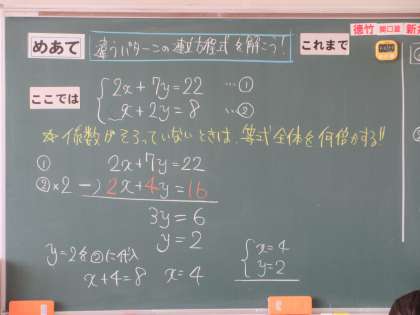 めあて 違うパターンの連立方程式を解こう! これまで 徳竹
ここでは
2x+7y=22 …①
x+2y=8 …②
☆係数がそろっていないときは、等式全体を何倍かする!!
① 2x+7y=22
②×2 -) 2x+4y=16
3y=6
y=2
y=2を②に代入
x+4=8 x=4
x=4
y=2